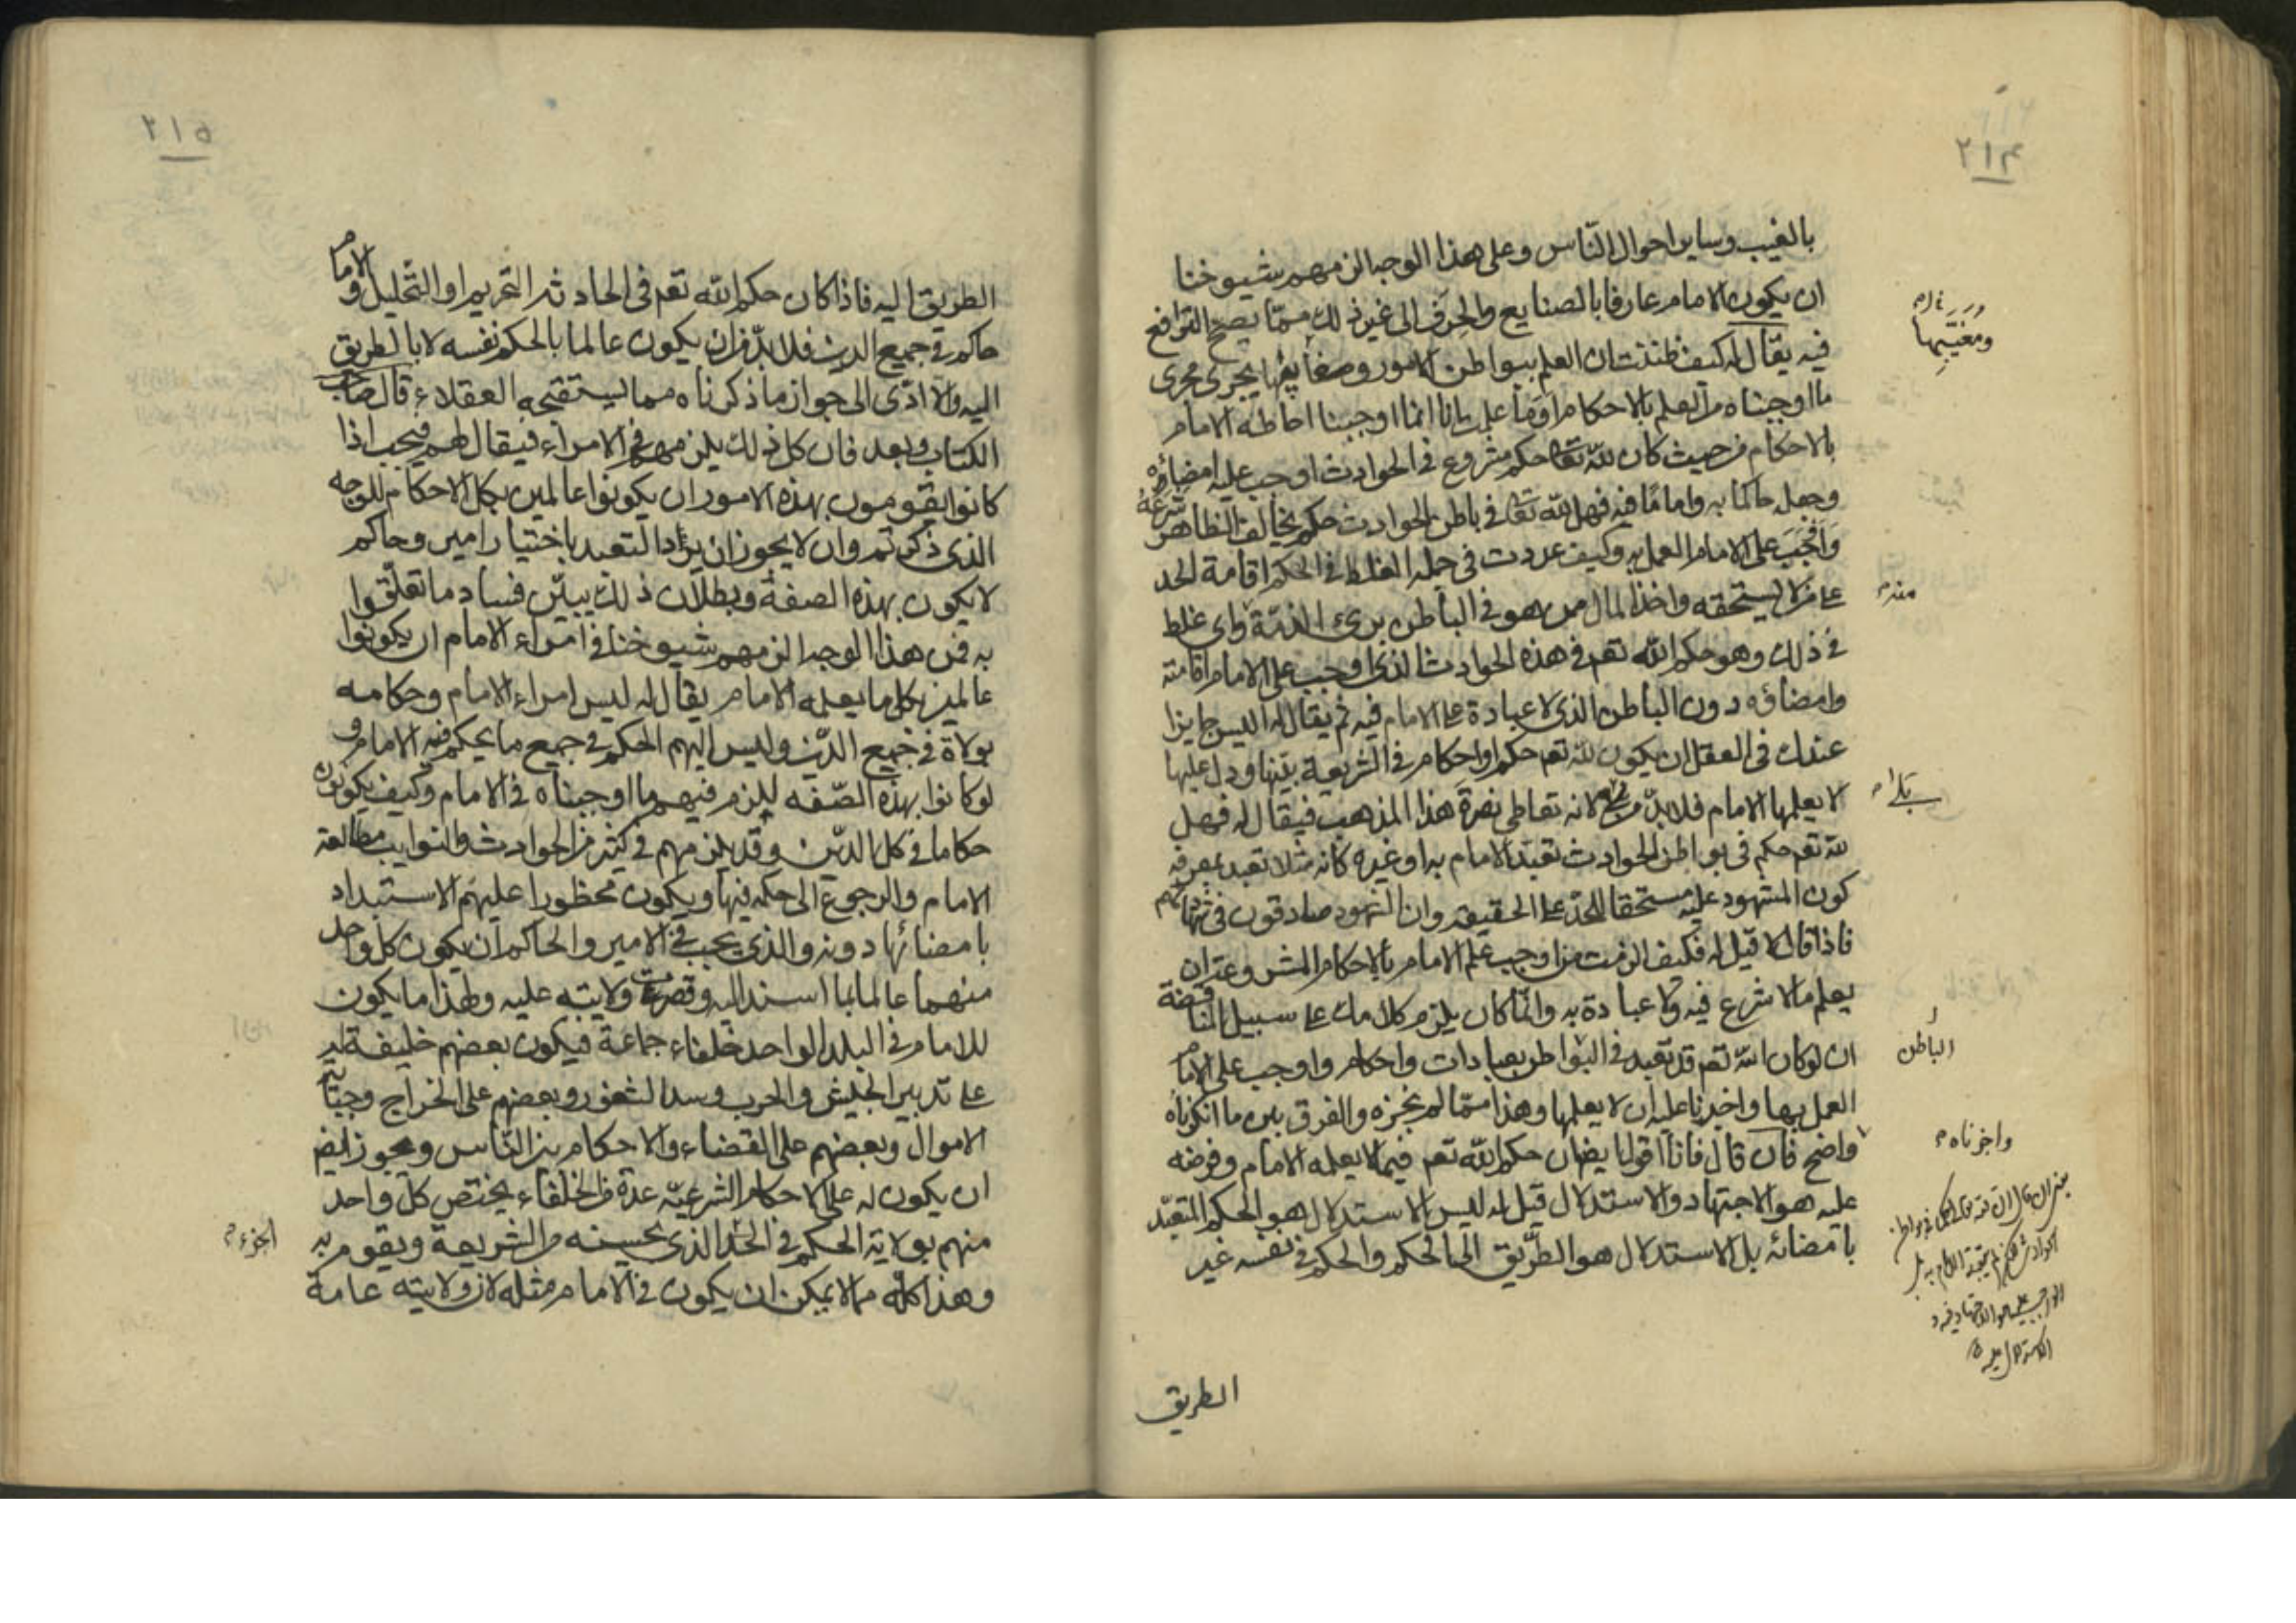 ٢١٤
بالغيب وساير احوال الناس وعلى هذا الوجه الزمهم شيوخنا
ان يكون الامام عارفا بالصنايع والحرف الى غير ذلك ممّا يصح الترافع
فيه يقال له كيف ظننت ان العلم ببواطن الامور يجرى مجرى
ما اوجبناه من العلم بالاحكام اوما علمت انا انما اوجبنا احاطة الامام
بالاحكام من حيث كان لله تعا حكم مشروع فى الحوادث اوجب عليه امضاؤه
وجعل حاكما به واماما فيه فهل لله تعا فى باطن الحوادث حكم يخالف الظاهر شرعه
واوجب على الامام العمل به وكيف عددت فى جملة الغلط فى الحكم اقامة الحد
على من لا يستحقه واخذ المال ممن هو فى الباطن برئ الذمّة واى غلط
فى ذلك وهو حكم الله تعم فى هذه الحوادث الذى اوجب على الامام اقامته
وامضاؤه دون الباطن الذى لا عبادة على الامام فيه ثم يقال له اليس جايزا
عندك فى العقل ان يكون لله تعم حكم او احكام فى الشريعة بيّنها ودل عليها
لا يعلمها الامام فلا بدّ من لانه تعاطى نصرة هذا المذهب فيقال له فهل
لله تعم حكم فى بواطن الحوادث تعبّد الامام به او غيره كانه مثلا تعبد بمعرفة
كون المشهود عليه مستحقا للحدّ على الحقيقة وان الشهود صادقون فى شهادتهم
فاذا قال لا قيل له فكيف الزمت من اوجب علم الامام بالاحكام المشروعة ان
يعلم ما لا شرع فيه ولا عبادة به وانّما كان يلزم كلامك على سبيل المناقضة
ان لو كان الله تعم قد تعبد فى البواطن بعبادات واحكام واوجب على الامام
العمل بها واخبرنا عليه ان لا يعلمها وهذا ممّا لم نجزه والفرق بين ما انكرناه
واضح فان قال فانا اقول ايضا ان حكم الله تعم فيما لا يعلمه الامام وفرضه
عليه هو الاجتهاد والاستدلال قيل له ليس الاستدلال هو الحكم المتعبّد
بامضائه بل الاستدلال هو الطّريق الى الحكم والحكم فى نفسه غير
الطريق
ومغيبها
منه م
الباطن
واجزناه م
٢١٥
الطريق اليه فاذا كان حكم الله تعم فى الحادثة التحريم او التّحليل والامام
حاكم فى جميع الدين فلا بدّ من ان يكون عالما بالحكم نفسه لا بالطريق
اليه والا ادّى الى جواز ما ذكرناه مما يستقبحه العقلاء قال صاحب
الكتاب وبعد فان كل ذلك يلزمهم فى الامراء فيقال لهم فيجب اذا
كانوا يقومون بهذه الامور ان يكونوا عالمين بكل الاحكام للوجه
الذى ذكرتم وان لا يجوز ان يراد التعبد باختيار امير وحاكم
لا يكون بهذه الصفة وبطلان ذلك يبيّن فساد ما تعلّقوا
به فمن هذا الوجه الزمهم شيوخنا فى امراء الامام ان يكونوا
عالمين بكل ما يعلمه الامام يقال له ليس امراء الامام وحكامه
بولاة فى جميع الدّين وليس اليهم الحكم فى جميع ما يحكم فيه الامام و
لو كانوا بهذه الصّفة للزم فيهم ما اوجبناه فى الامام وكيف يكونون
حكاما فى كل الدّين وقد يلزمهم فى كثير من الحوادث والنوايب مطالعة
الامام والرجوع الى حكمه فيها ويكون محظورا عليهم الاستبداد
بامضائها دونه والذى يجب فى الامير والحاكم ان يكون كل واحد
منهما عالما بما اسند اليه وقصرت ولايته عليه ولهذا ما يكون
للامام فى البلد الواحد خلفاء جماعة فيكون بعضهم خليفة له
على تدبير الجيش والحرب وسد الثغور وبعضهم على الخراج وجباية
الاموال وبعضهم على القضاء والاحكام بين النّاس ويجوز ايض
ان يكون له على الاحكام الشرعيّة عدة من الخلفاء يختص كلّ واحد
منهم بولاية الحكم فى الحدّ الذى يحسنه من الشريعة ويقوم به
وهذا كلّه مما لا يمكن ان يكون فى الامام مثله لان ولايته عامة
الجزء م